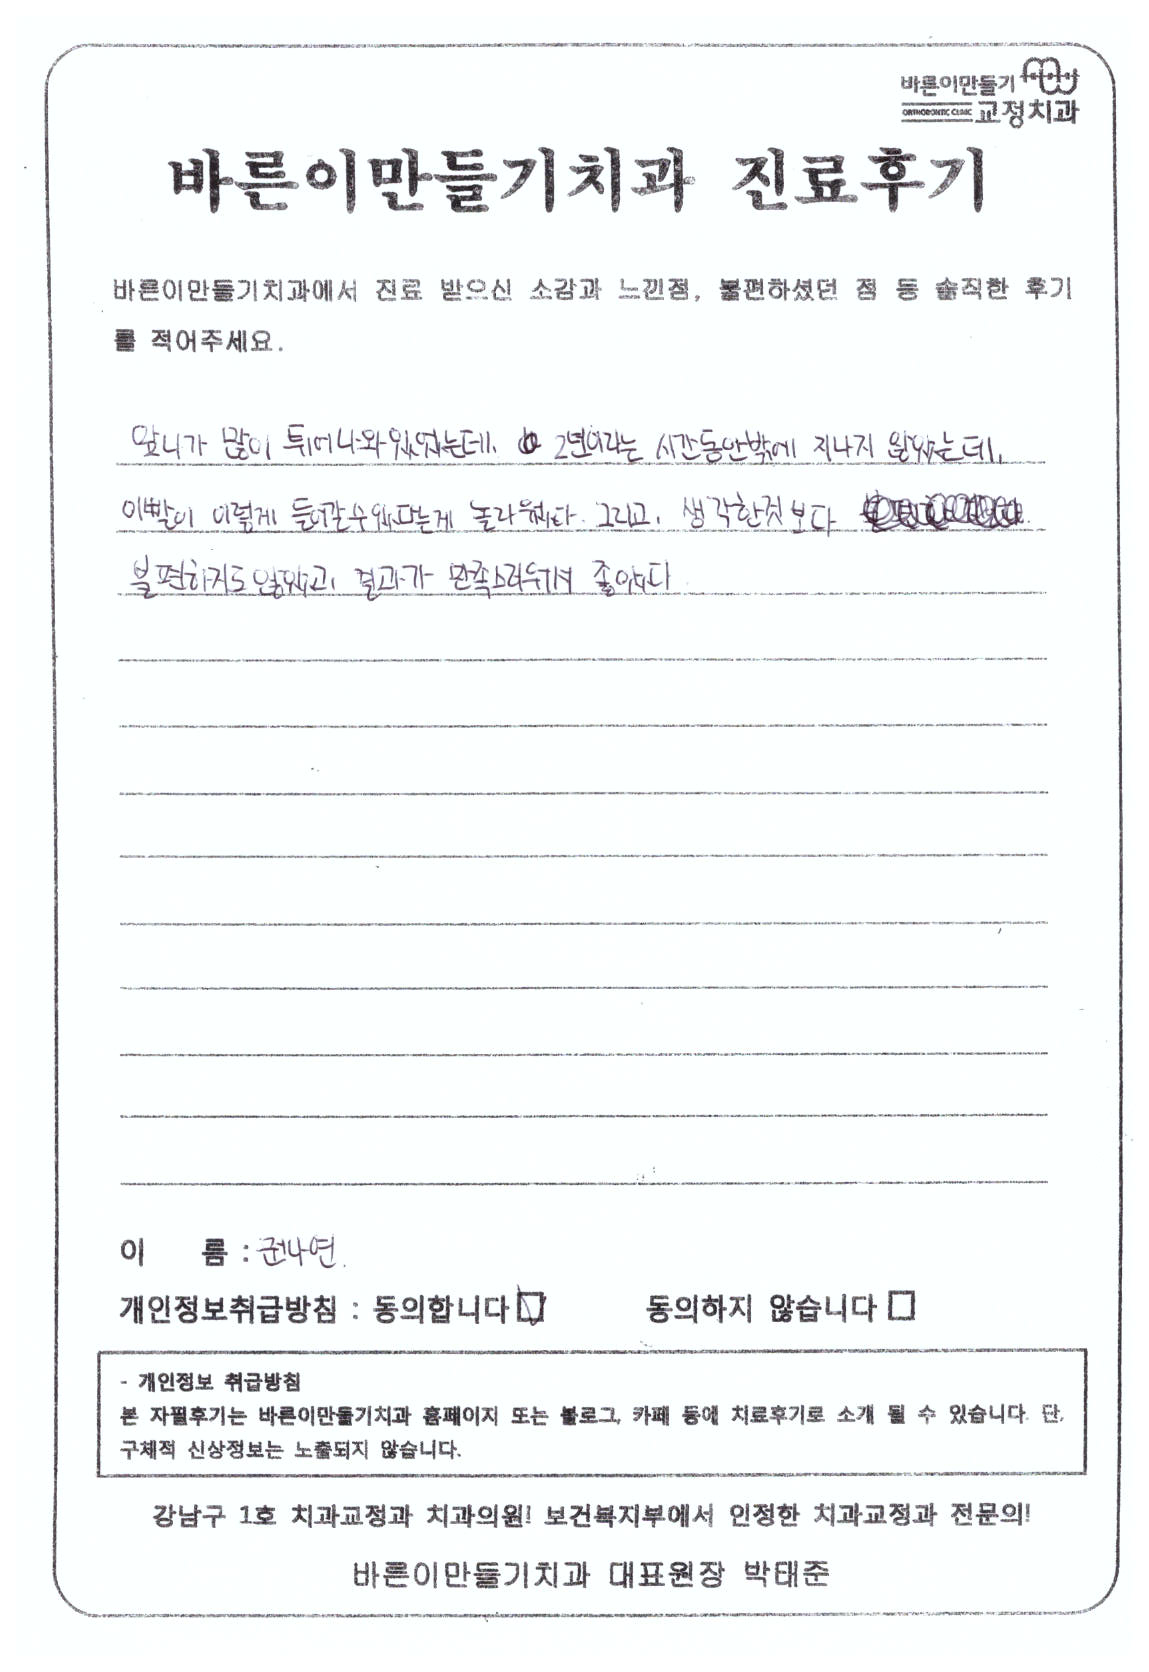 바른이만들기
ORTHODONTIC CLINIC 교정치과
바른이만들기치과 진료후기
바른이만들기치과에서 진료 받으신 소감과 느낀점, 불편하셨던 점 등 솔직한 후기
를 적어주세요.
앞니가 많이 튀어나와있었는데, 2년이라는 시간동안밖에 지나지 않았는데,
이빨이 이렇게 들어갈수있다는게 놀라웠다. 그리고, 생각한것보다
불편하지도않았고, 결과가 만족스러워서 좋았다
이 름 : 권나연.
개인정보취급방침 : 동의합니다 동의하지 않습니다
- 개인정보 취급방침
본 자필후기는 바른이만들기치과 홈페이지 또는 블로그, 카페 등에 치료후기로 소개 될 수 있습니다. 단,
구체적 신상정보는 노출되지 않습니다.
강남구 1호 치과교정과 치과의원! 보건복지부에서 인정한 치과교정과 전문의!
바른이만들기치과 대표원장 박태준